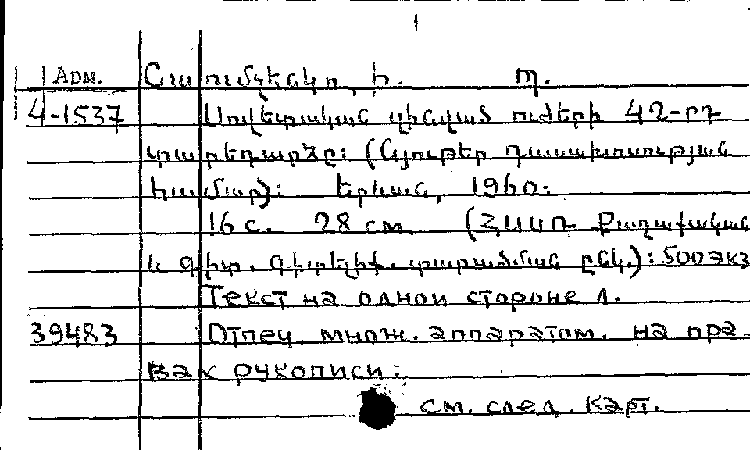 1
Арм. Շաումչենկո, Ի. Պ.
4-1537 Սովետական զինված ուժերի 42-րդ
տարեդարձը: (Նյութեր դասախոսության
համար): Երևան, 1960.
16 с. 28 см. (ՀՍՍՌ Քաղաքական
և գիտ. գիտելիք. տարածման ընկ.): 500 экз
Текст на одной стороне л.
39483 Отпеч. множ. аппаратом. на пра-
вах рукописи.
см. след. карт.